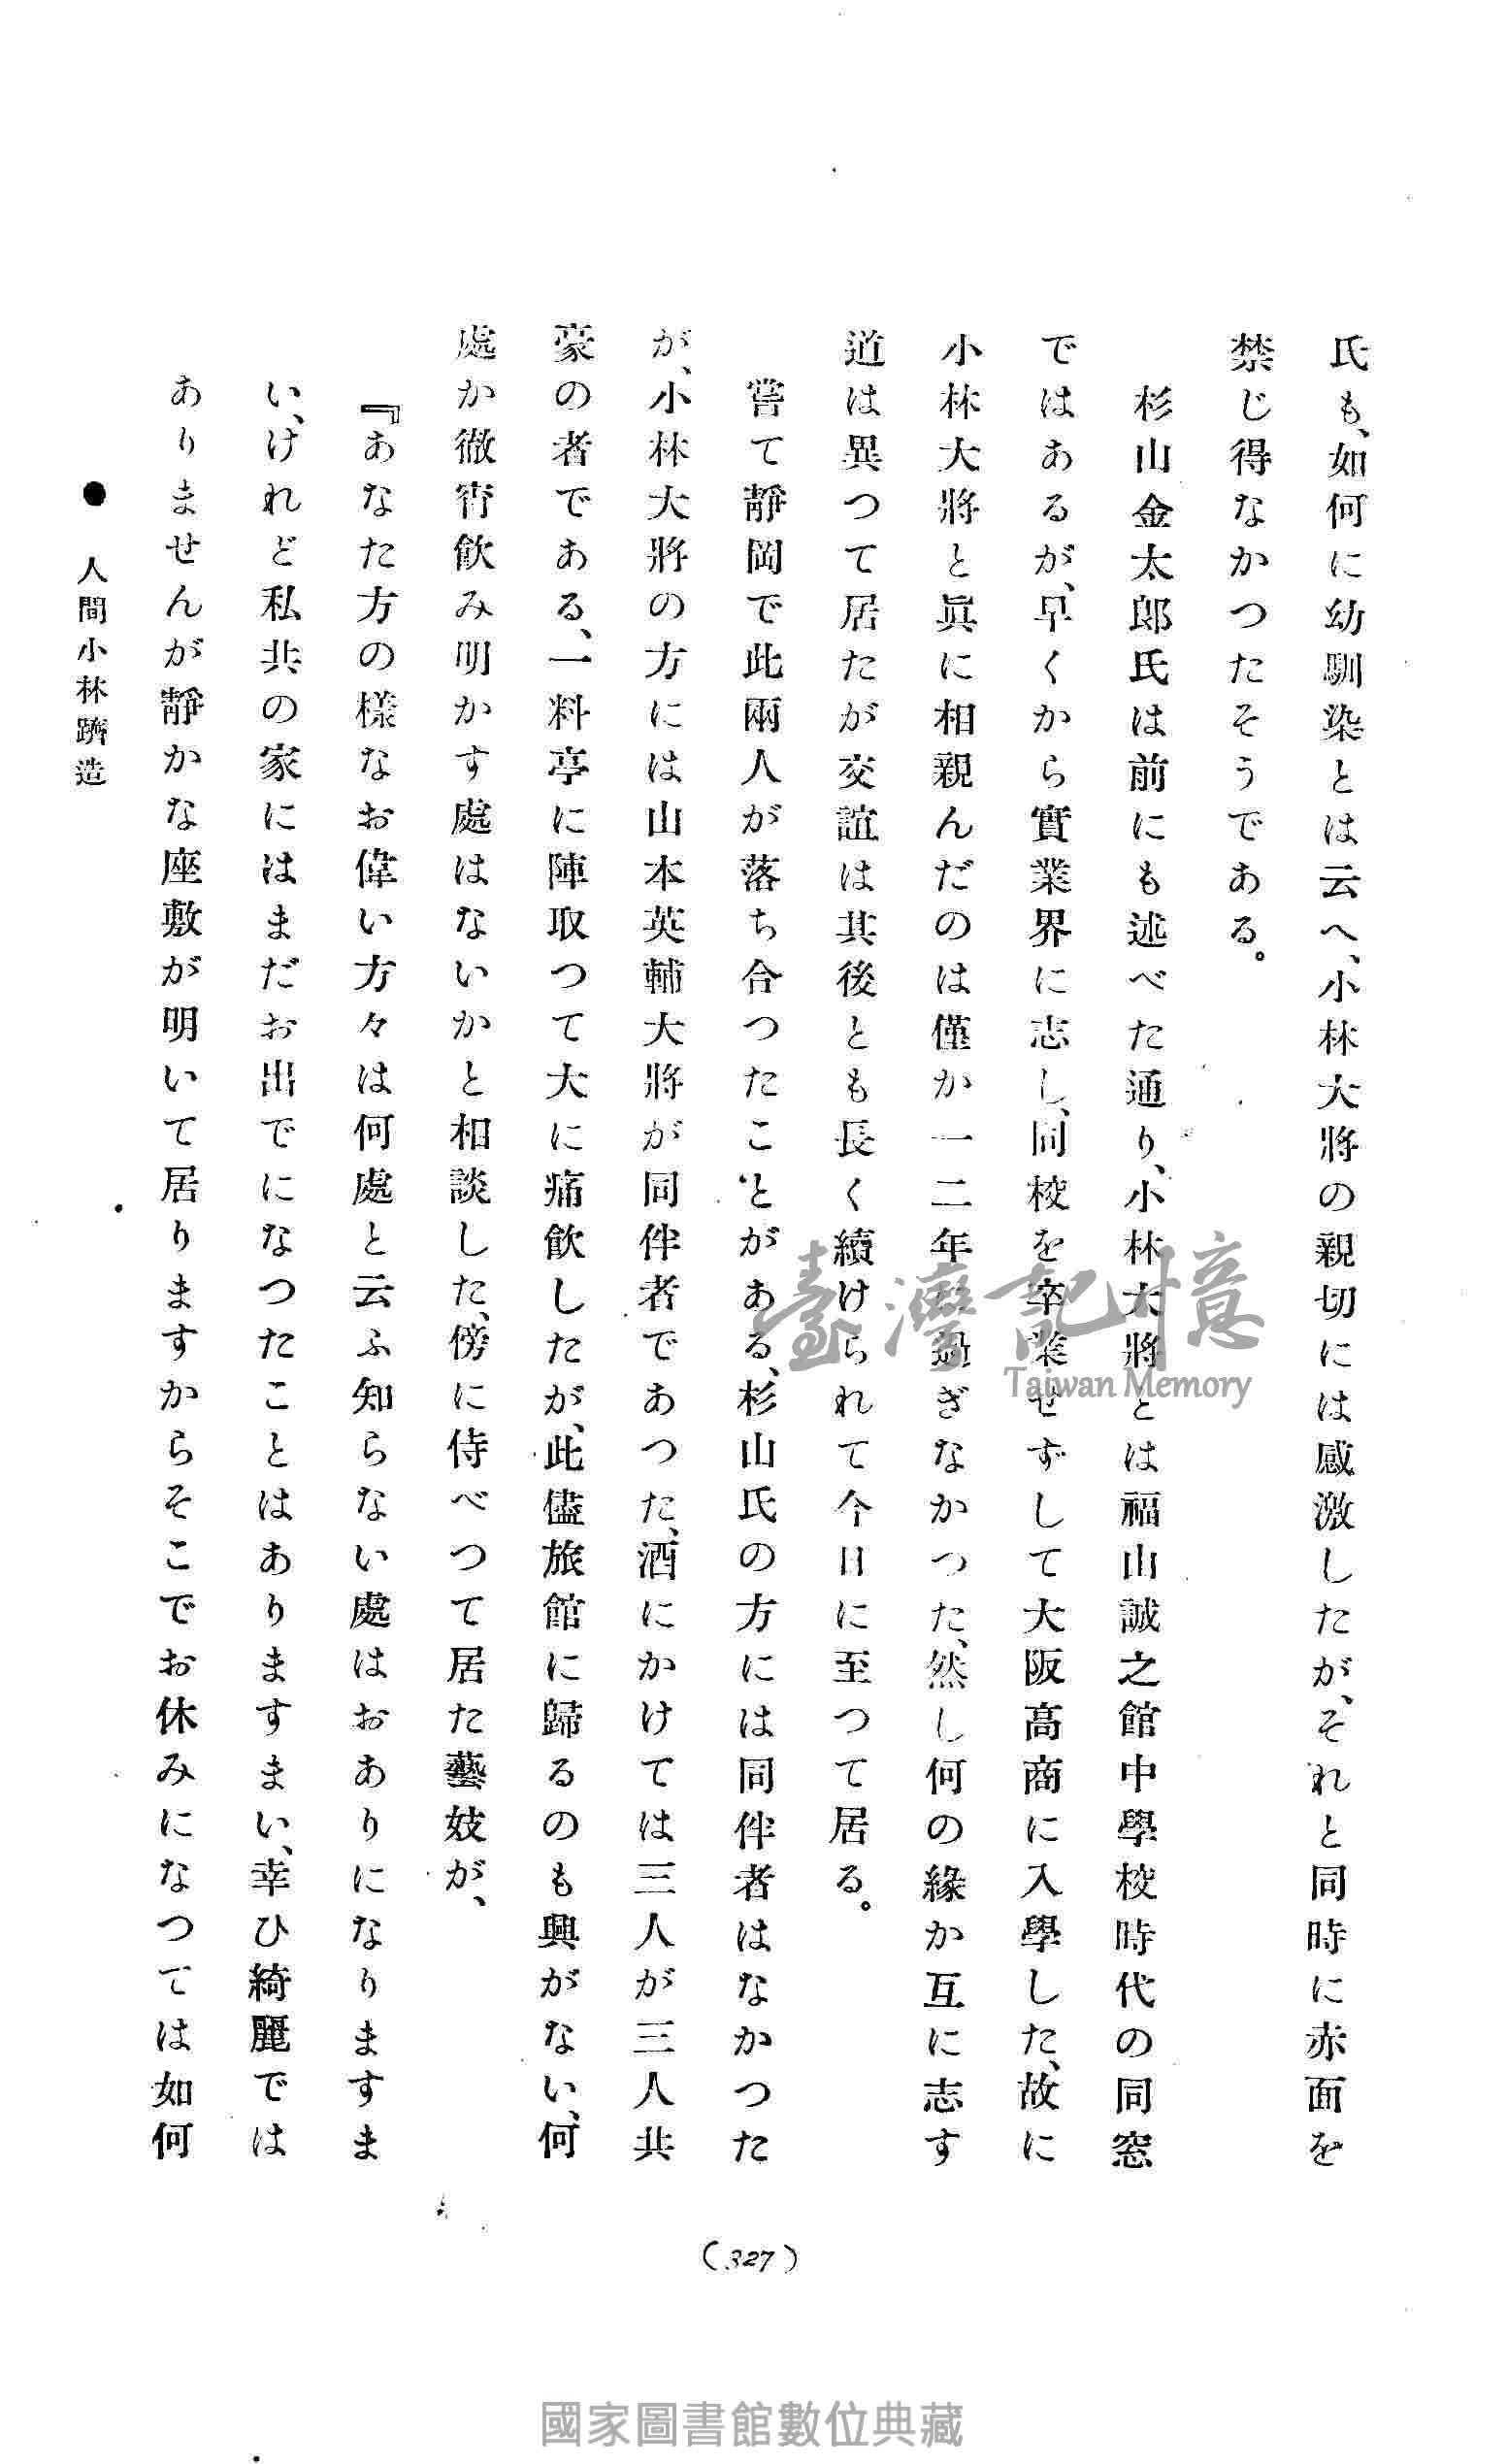 氏も、如何に幼馴染とは云へ、小林大將の親切には感激したが、それと同時に赤面を
禁じ得なかつたそうである。
杉山金太郎氏は前にも述べた通り、小林大將とは福山誠之館中學校時代の同窓
ではあるが、早くから實業界に志し、同校を卒業せずして大阪高商に入學した、故に
小林大將と眞に相親んだのは僅か一二年に過ぎなかつた、然し何の緣か互に志す
道は異つて居たが交誼は其後とも長く續けられて今日に至つて居る。
嘗て靜岡で此兩人が落ち合つたことがある、杉山氏の方には同伴者はなかつた
が、小林大將の方には山本英輔大將が同伴者であつた、酒にかけては三人が三人共
豪の者である、一料亭に陣取つて大に痛飮したが、此儘旅館に歸るのも興がない、何
處か徹宵飮み明かす處はないかと相談した、傍に侍べつて居た藝妓が、
『あなた方の樣なお偉い方々は何處と云ふ知らない處はおありになりますま
い、けれど私共の家にはまだお出でになつたことはありますまい、幸ひ綺麗では
ありませんが靜かな座敷が明いて居りますからそこでお休みになつては如何
● 人間小林躋造
(327)
臺灣記憶
Taiwan Memory
國家圖書館數位典藏